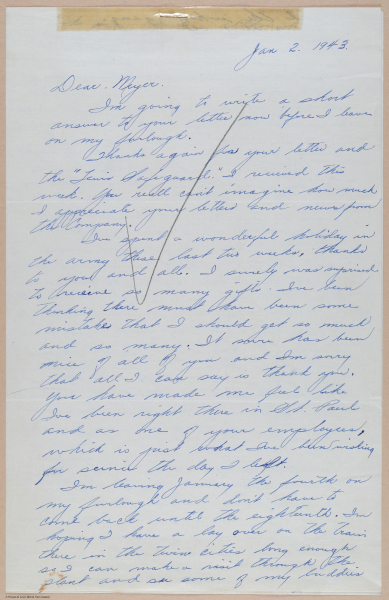 Jan 2. 1943.
Dear Meyer.
I'm going to write a short
answer to your letter now before I leave
on my furlough.
Thanks again for your letter and
the "Twins Safeguard." I received this
week. You well can't imagine how much
I appreciate your letters and news from
the Company.
I've spent a wonderful holiday in
the army these last two weeks, thanks
to you and all. I surely was surprised
to receive so many gifts. I've been
thinking there must have been some
mistakes that I should get so much
and so many. It sure has been
nice of all of you and I'm sorry
that all I can say is thank you.
You have made me feel like
I've been right there in St. Paul
and as one of your employees,
which is just what I've been
for service the day I left.
I'm leaving January the fourth on
my furlough and don't have to
come back until the eighteenth. I'm
hoping I have a lay over on the train
there in the twin cities long enough
so I can make a visit through the
plant and see some of my buddies